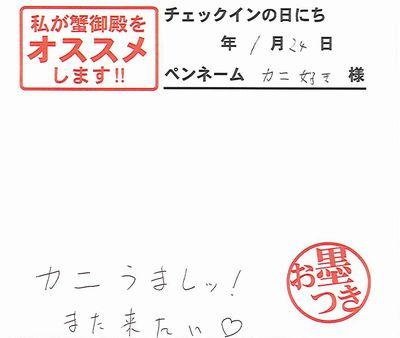 私が蟹御殿を
オススメ
します!!
チェックインの日にち
年 1月24日
ペンネーム カニ好き 様
カニうましッ!
また来たい♡
お墨つき